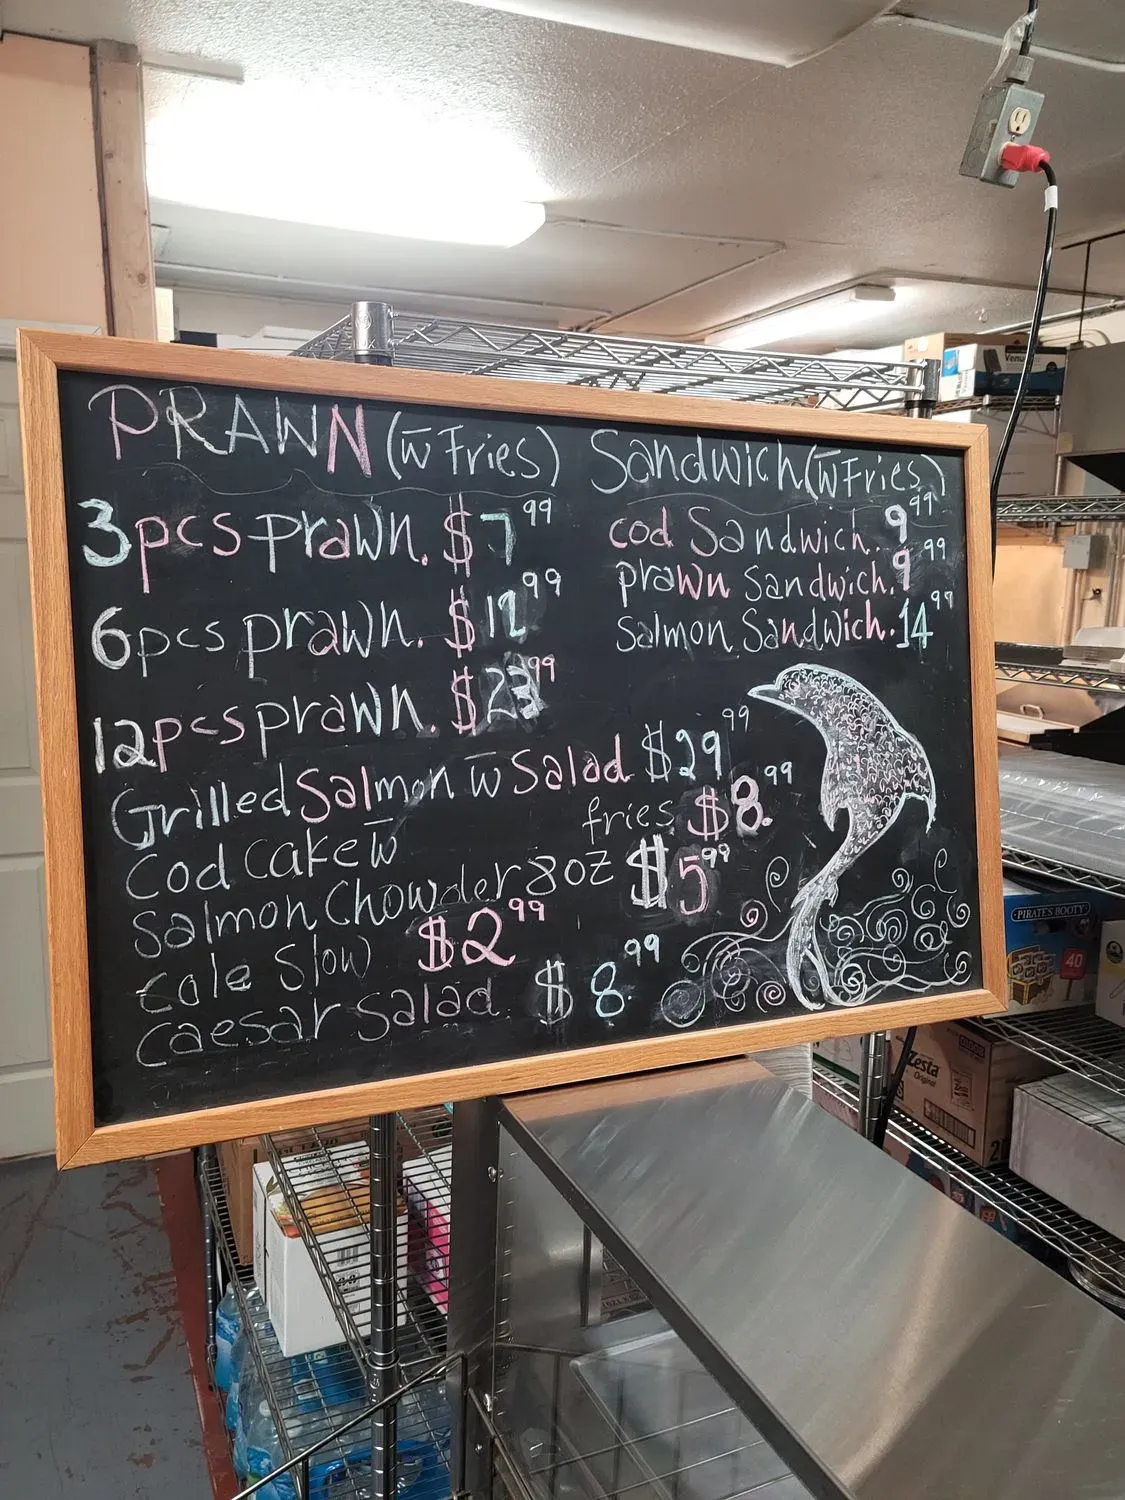 PRAWN (w̄ Fries)
3pcs prawn. $7.99
6pcs prawn. $12.99
12pcs prawn. $23.99
Sandwich (w̄ Fries)
cod Sandwich. 9.99
prawn Sandwich. 9.99
Salmon Sandwich. 14.99
Grilled Salmon w̄ Salad $29.99
Cod cake w̄ fries $8.99
Salmon Chowder 8oz $5.99
Cole Slow $2.99
caesar salad. $8.99
Venu
PIRATE'S BOOTY
40
Zesta
Original